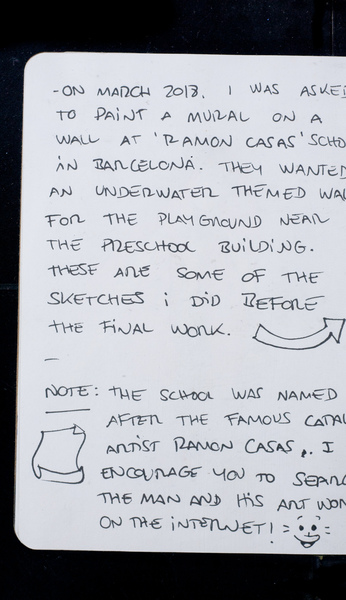 -ON MARCH 2018. I WAS ASKED
TO PAINT A MURAL ON A
WALL AT 'RAMON CASAS' SCHO
IN BARCELONA. THEY WANTED
AN UNDERWATER THEMED WAL
FOR THE PLAYGROUND NEAR
THE PRESCHOOL BUILDING.
THESE ARE SOME OF THE
SKETCHES I DID BEFORE
THE FINAL WORK.
—
NOTE: THE SCHOOL WAS NAMED
AFTER THE FAMOUS CATAL
ARTIST RAMON CASAS. I
ENCOURAGE YOU TO SEARC
THE MAN AND HIS ART WOR
ON THE INTERNET!